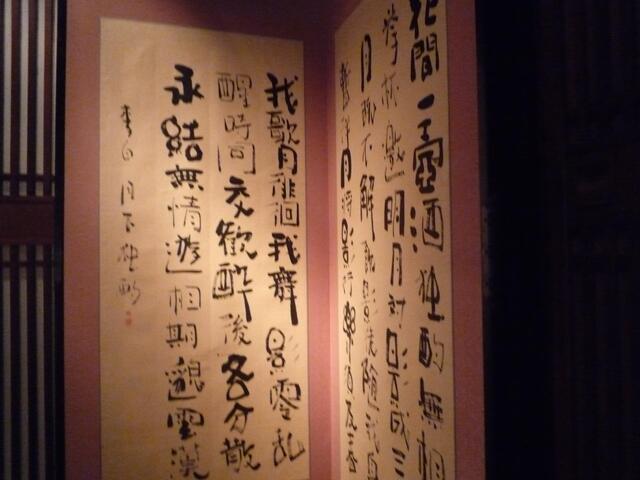 花間一壺酒独酌無相
挙杯邀明月対影成三
月既不解飲影徒随我身
暫伴月将影行楽須及春
我歌月徘徊我舞影零乱
醒時同交歓酔後各分散
永結無情遊相期邈雲漢
李白月下独酌